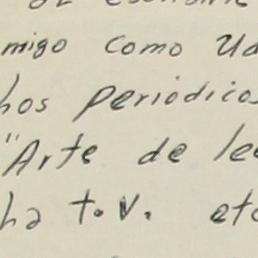 migo como Ud
hos periódicos
"Arte de lee
ha t.v. etc